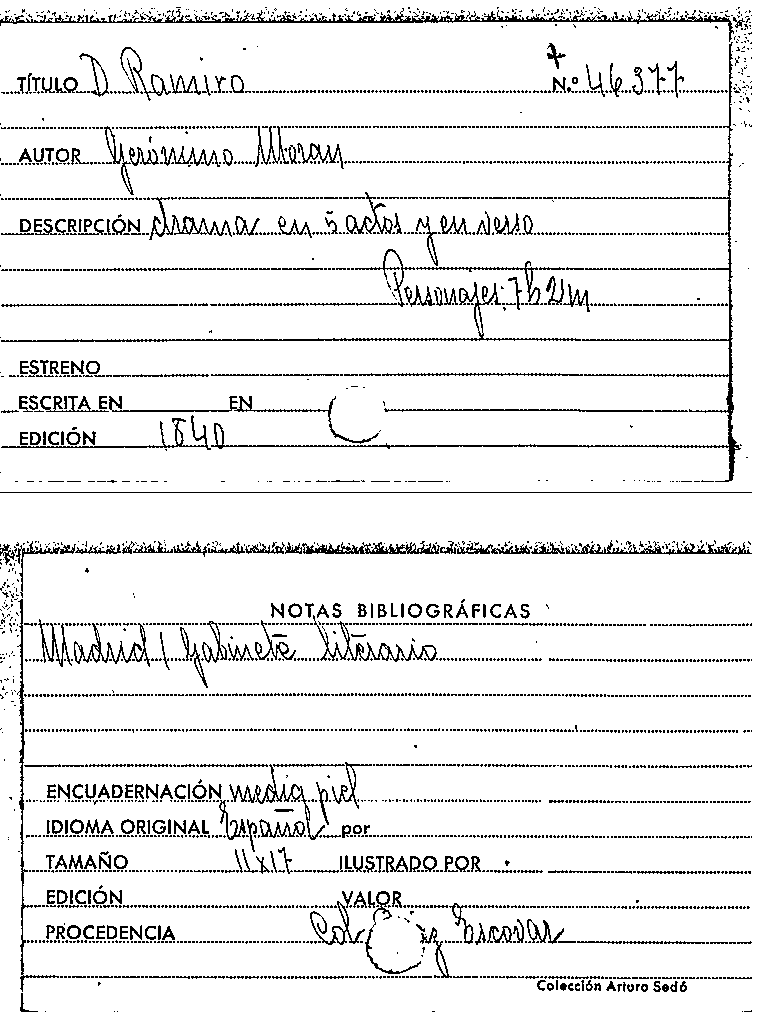 TÍTULO D Ramiro + N.º 46377
AUTOR Gerónimo Moran
DESCRIPCIÓN drama en 5 actos y en verso
Personajes: 7h 2m
ESTRENO
ESCRITA EN EN
EDICIÓN 1840
NOTAS BIBLIOGRÁFICAS
Madrid / Gabinete literario
ENCUADERNACIÓN media piel
IDIOMA ORIGINAL Español por
TAMAÑO 11x17 ILUSTRADO POR
EDICIÓN VALOR
PROCEDENCIA Col Escovar
Colección Arturo Sedó